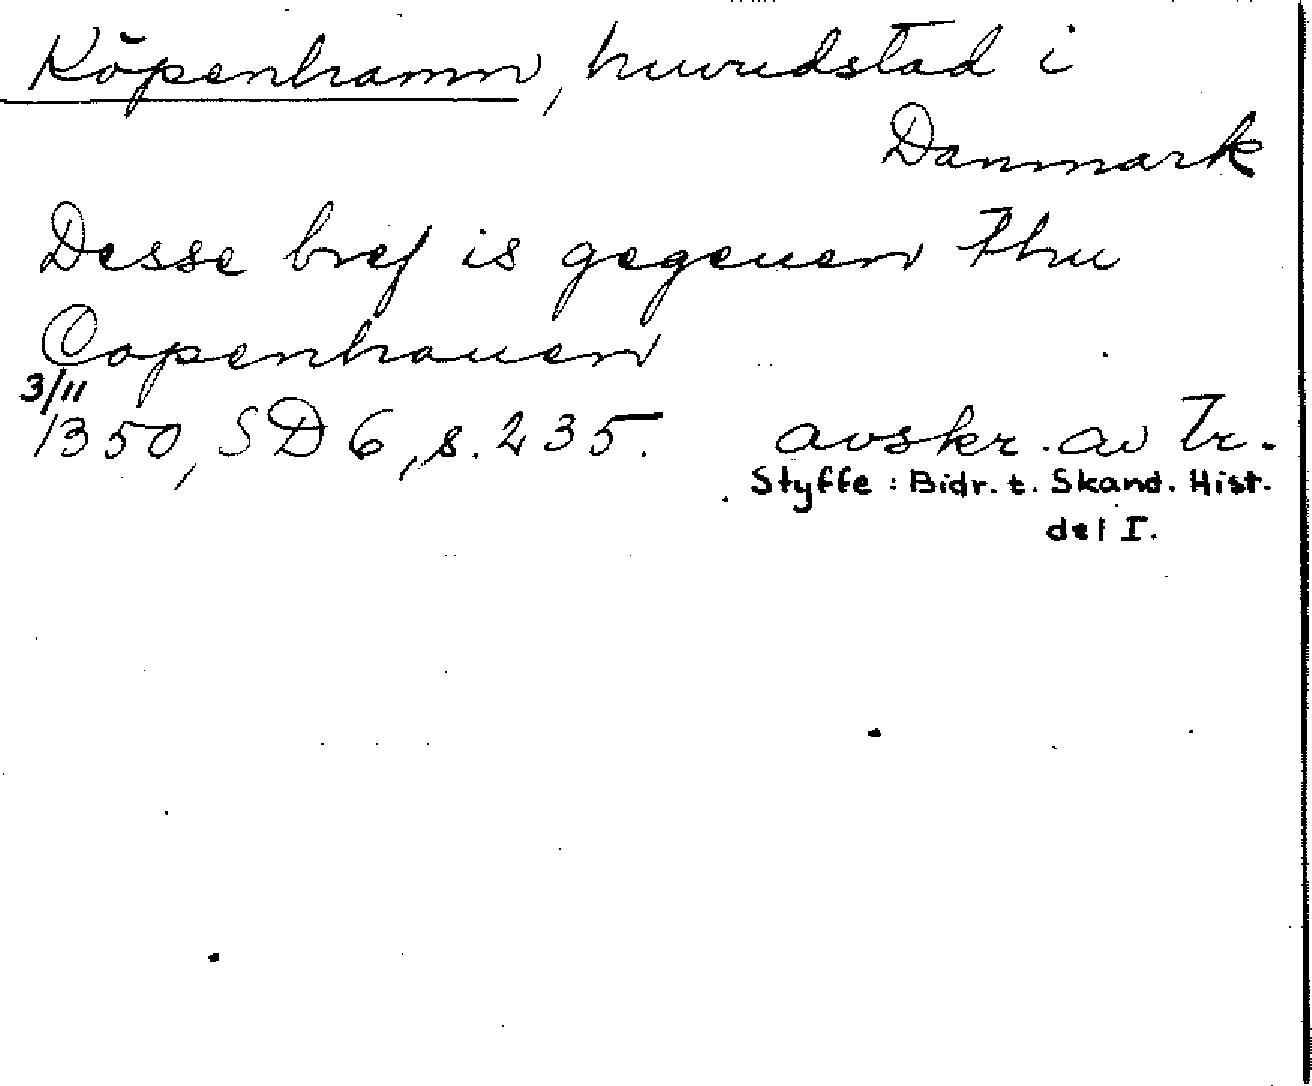 Köpenhamn, huvudstad i
Danmark
Desse bref is gegeuen thu
Copenhauen
3/11
1350, SD 6, s. 235. avskr. av tr.
Styffe: Bidr. t. Skand. Hist.
del I.